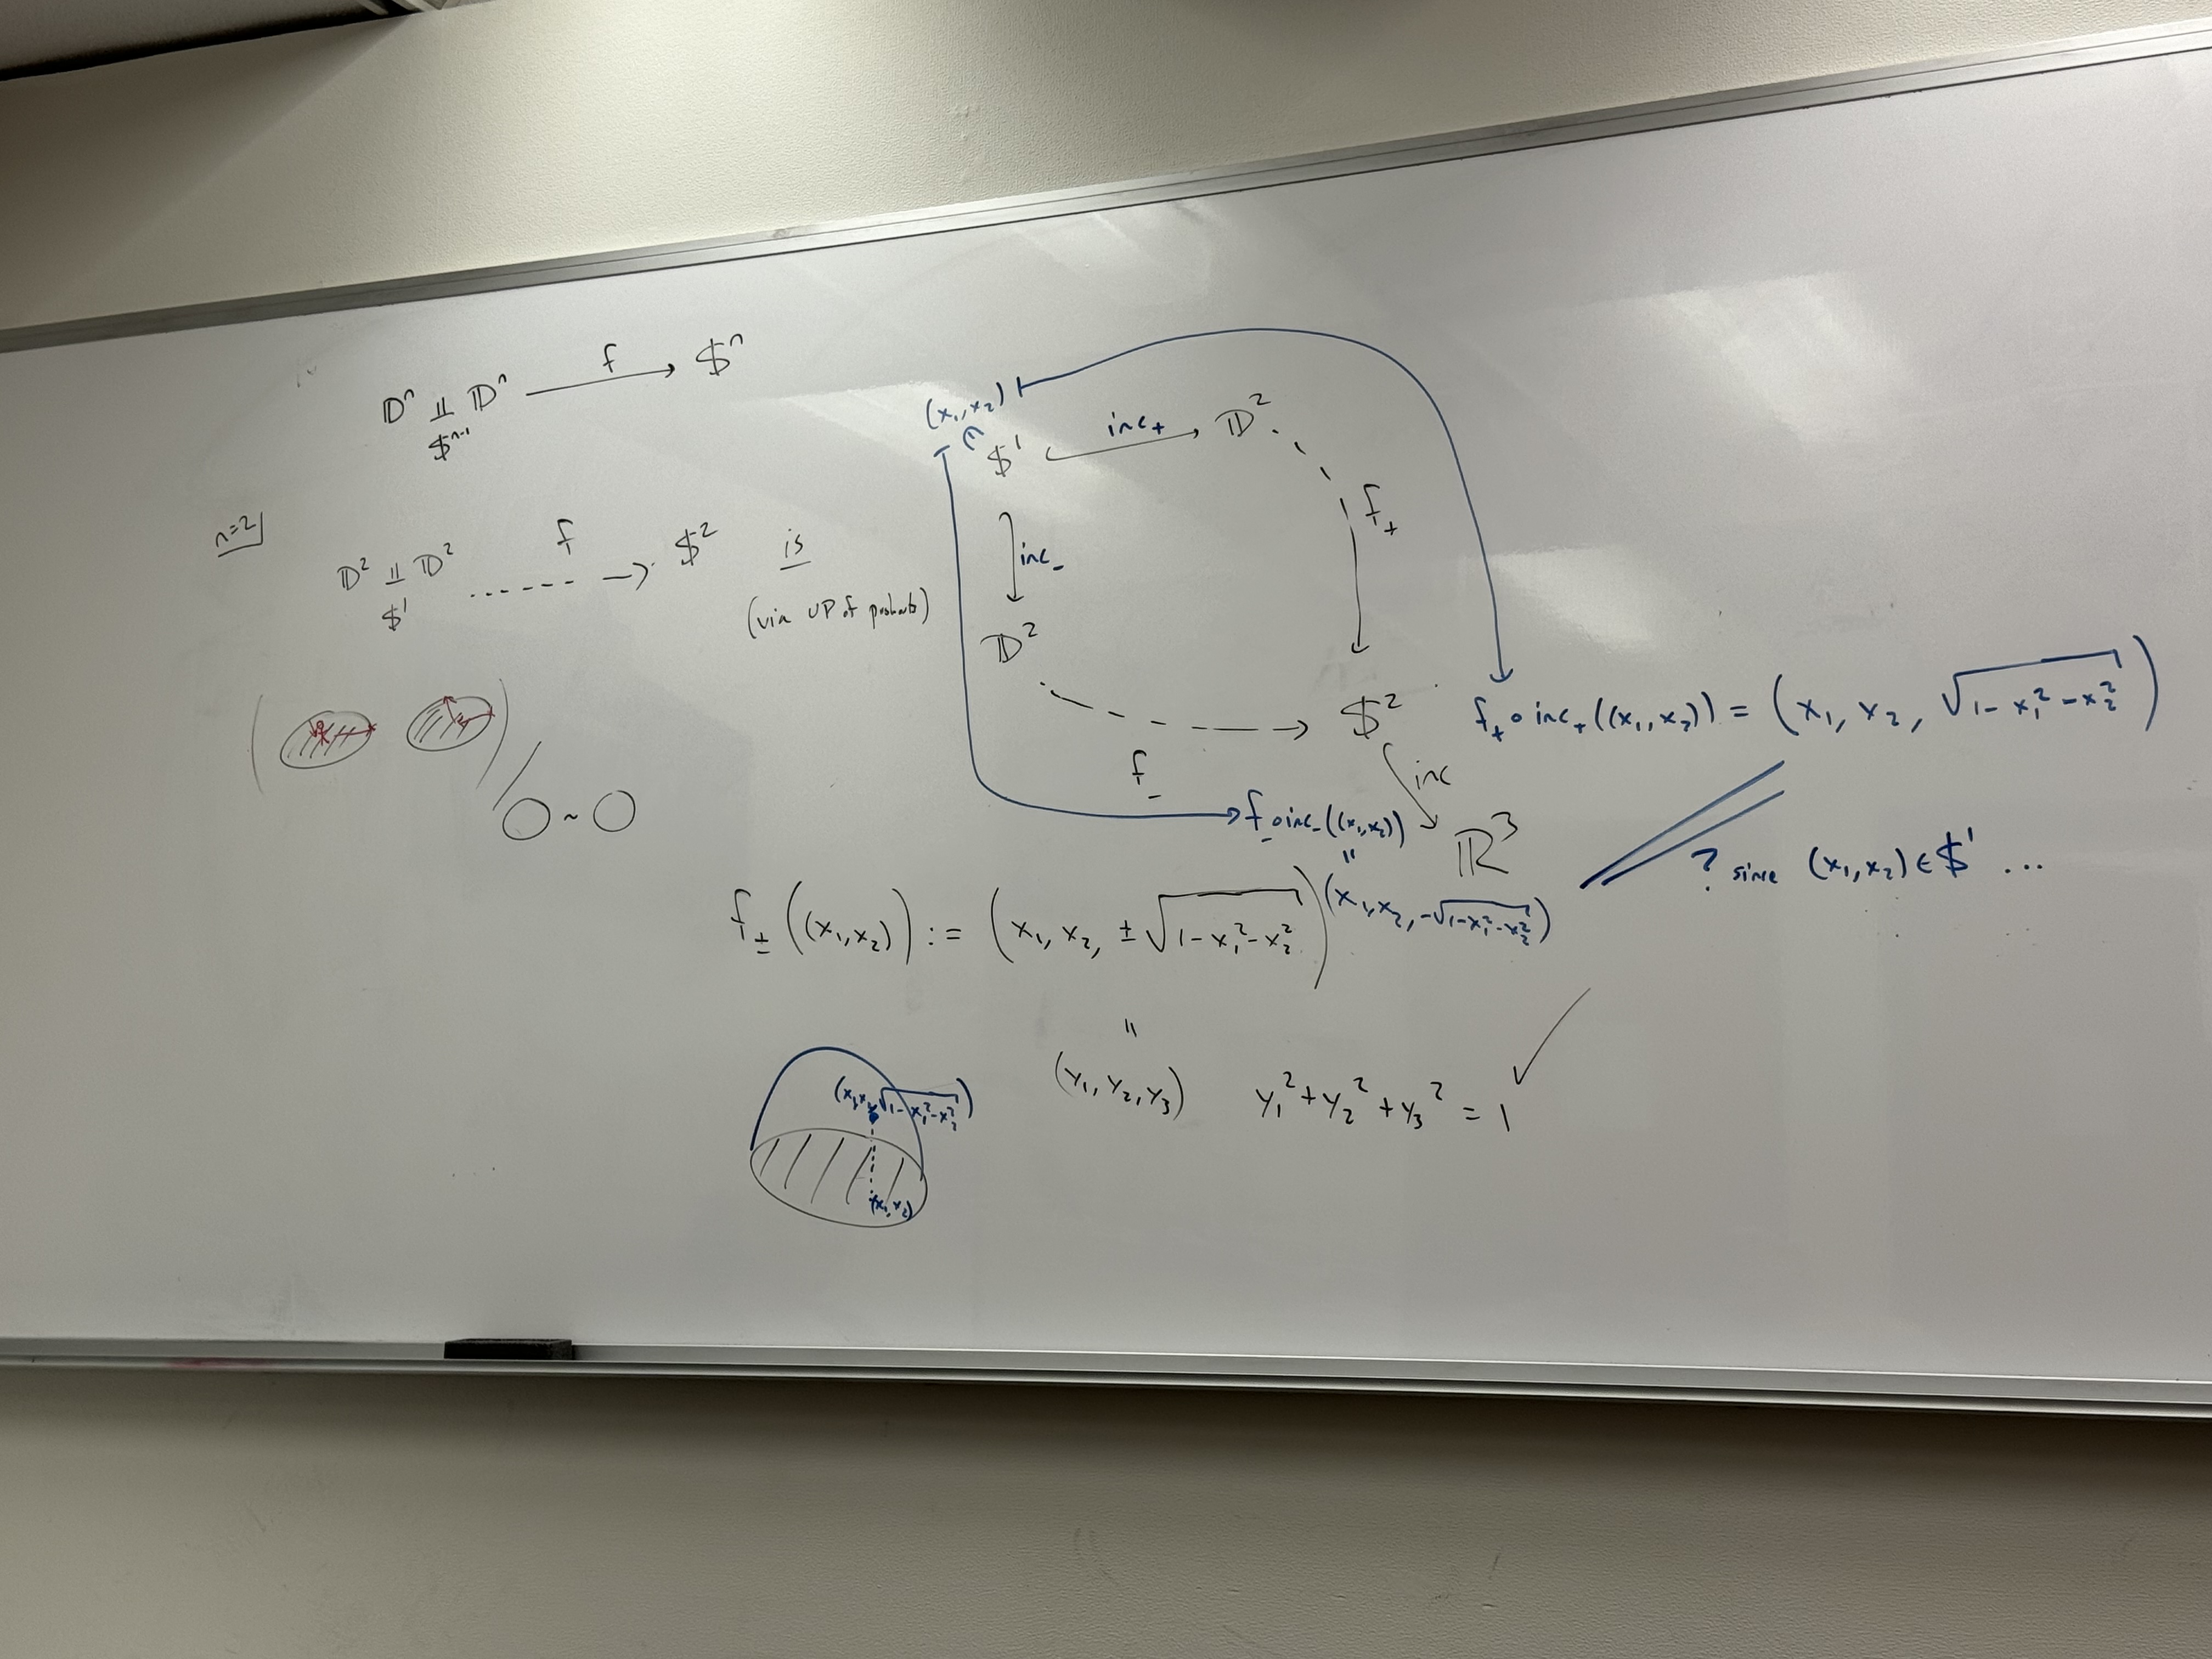 𝔻ⁿ ⨿ 𝔻ⁿ —f→ 𝕊ⁿ
𝕊ⁿ⁻¹
n=2
𝔻² ⨿ 𝔻² - - - f - -> 𝕊² is
𝕊¹
(via UP of pushouts)
( ) / ○ ~ ○
(x₁,x₂)
∈
𝕊¹ inc₊ 𝔻²
inc₋ f₊
𝔻²
f₋ 𝕊²
inc
ℝ³
f₊∘inc₊((x₁,x₂)) = (x₁, x₂, √(1-x₁²-x₂²))
f₋∘inc₋((x₁,x₂))
=
(x₁,x₂,-√(1-x₁²-x₂²))
? since (x₁,x₂)∈𝕊¹ ...
f±((x₁,x₂)) := (x₁, x₂, ±√(1-x₁²-x₂²))
=
(y₁,y₂,y₃) y₁²+y₂²+y₃² = 1 ✓
(x₁,x₂,√(1-x₁²-x₂²))
(x₁,x₂)